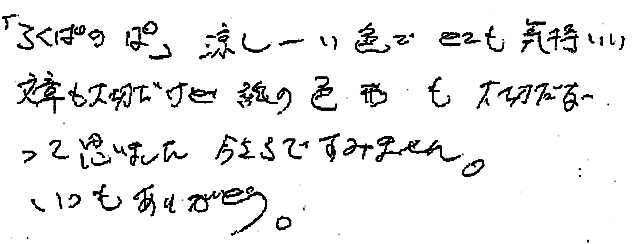 「ろくぱのぱ」涼しーい色でとても気持いい
文章も大切だけど 紙の色形も大切だなー
って思いました 今さらですみません。
いつもありがとう。